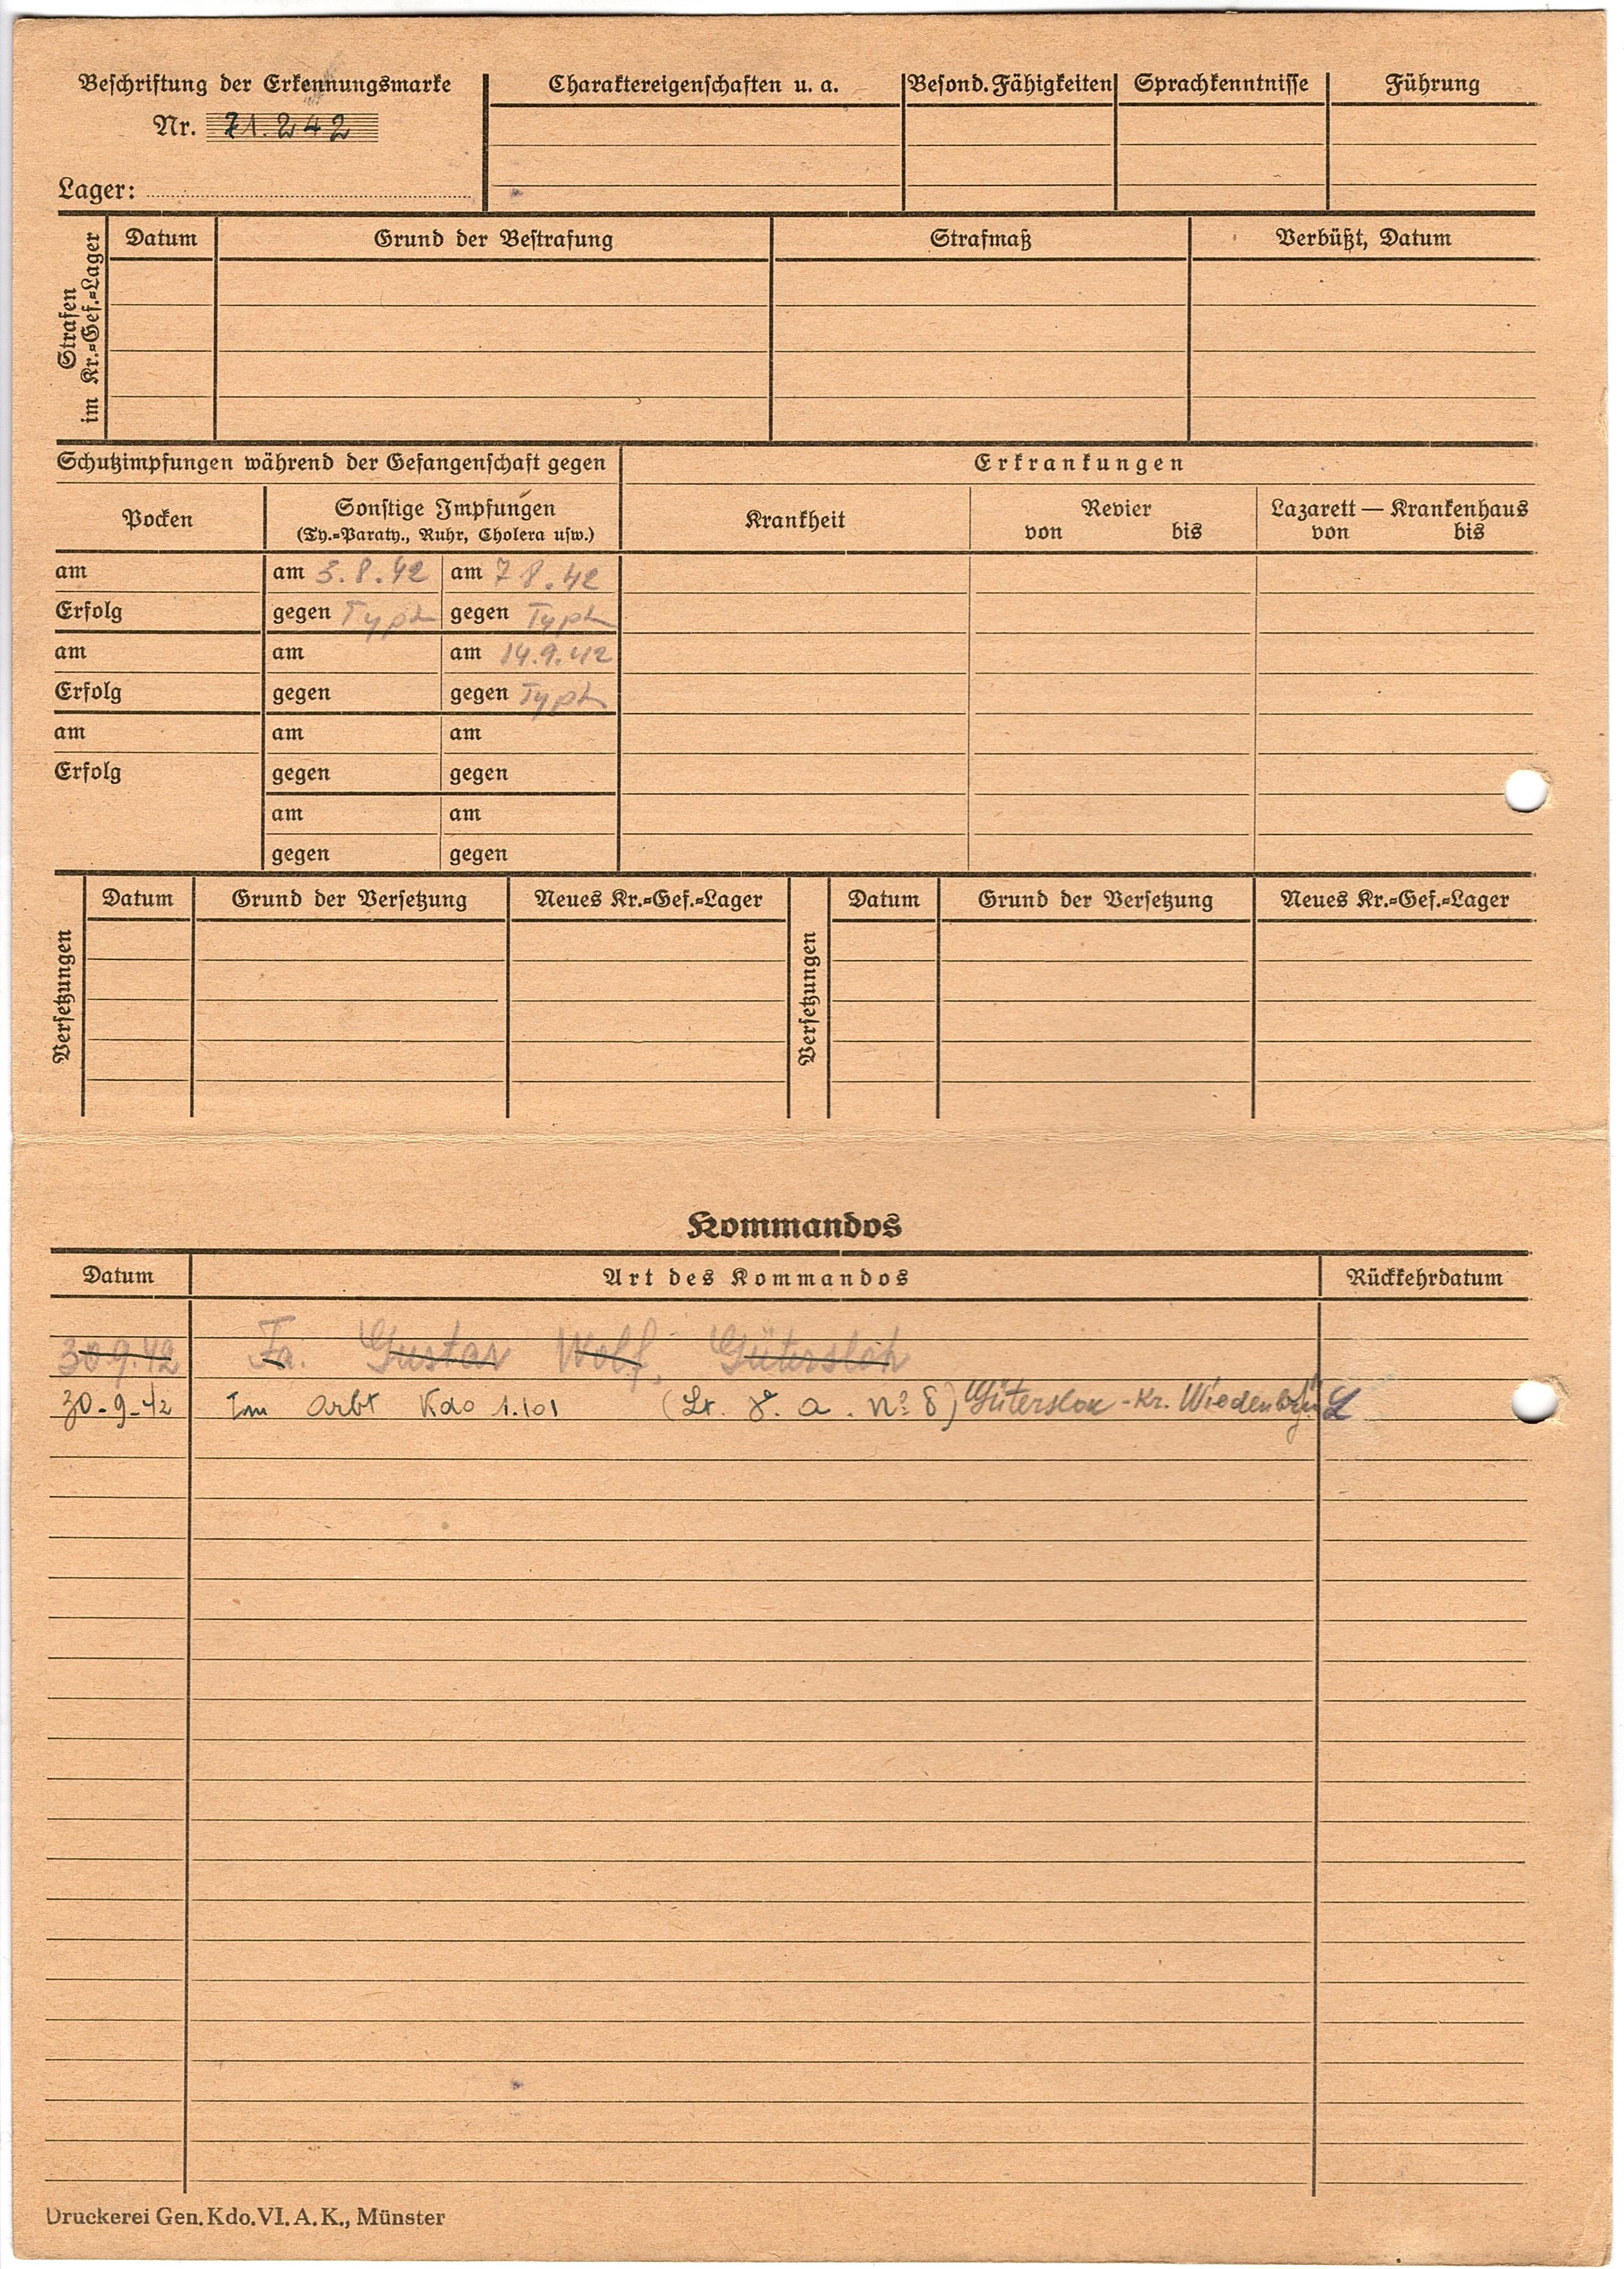 Beschriftung der Erkennungsmarke
Nr. 71.242
Lager:
Charaktereigenschaften u. a.
Besond. Fähigkeiten
Sprachkenntnisse
Führung
Strafen
im Kr.=Gef.=Lager
Datum
Grund der Bestrafung
Strafmaß
Verbüßt, Datum
Schutzimpfungen während der Gefangenschaft gegen
Erkrankungen
Pocken
Sonstige Impfungen
(Ty.=Paraty., Ruhr, Cholera usw.)
Krankheit
Revier
von bis
Lazarett — Krankenhaus
von bis
am am 3.8.42 am 7 8.42
Erfolg gegen Typh gegen Typh
am am am 14.9.42
Erfolg gegen gegen Typh
am am am
Erfolg gegen gegen
am am
gegen gegen
Versetzungen
Datum
Grund der Versetzung
Neues Kr.=Gef.=Lager
Versetzungen
Datum
Grund der Versetzung
Neues Kr.=Gef.=Lager
Kommandos
Datum Art des Kommandos Rückkehrdatum
30.9.42 Fa. Gustav Wolf, Gütersloh
30-9-42 Im Arbt Kdo 1.101 a. Nº 8) Gütersloh - Kr. Wiedenbrück
Druckerei Gen. Kdo. VI. A. K., Münster